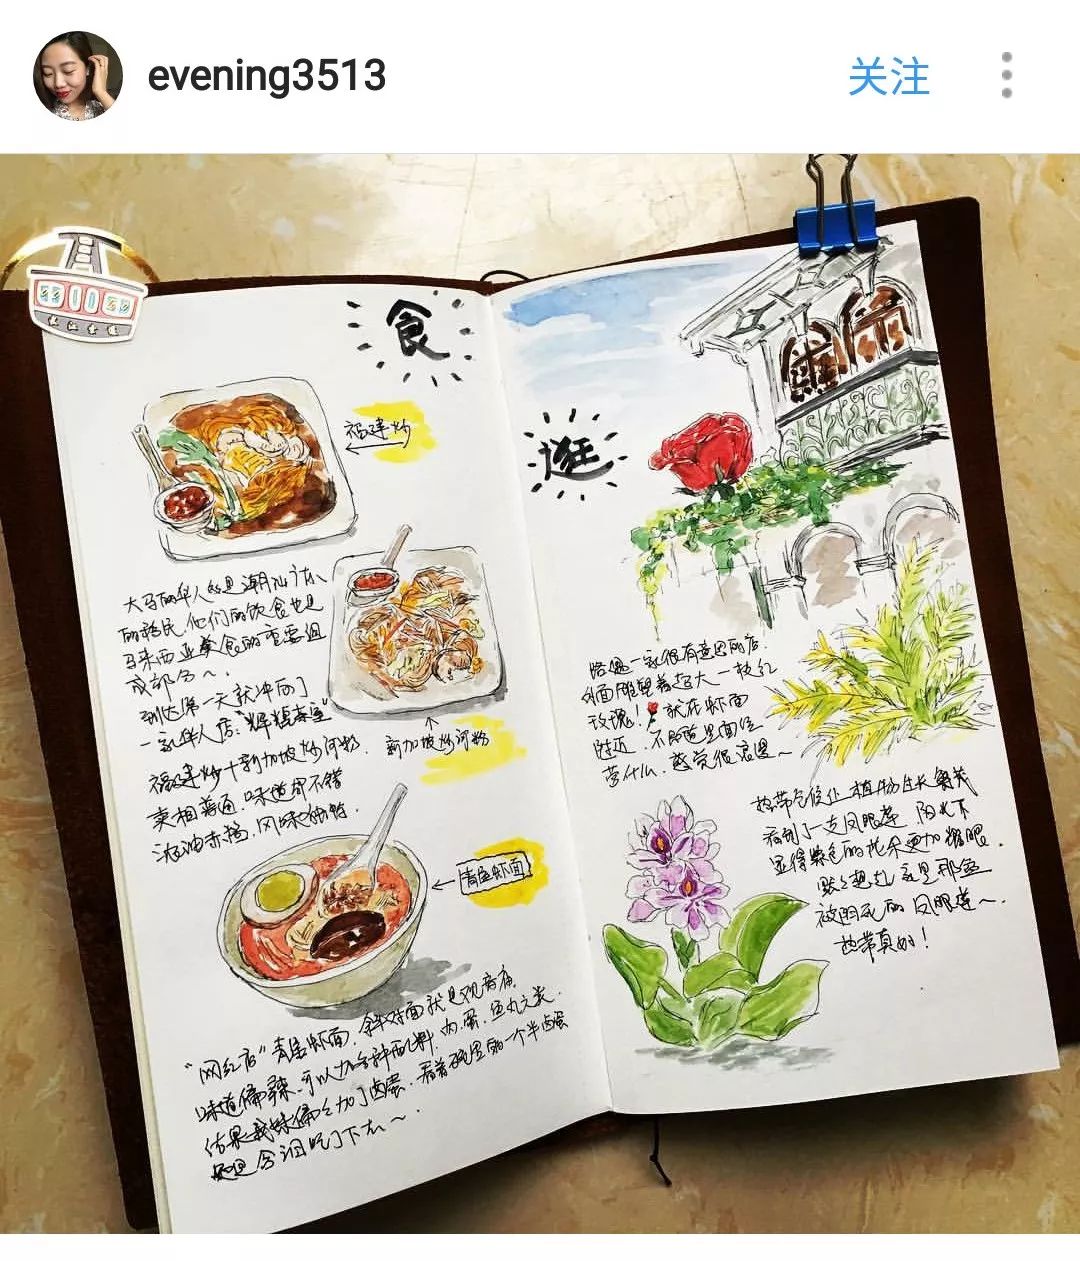 evening3513
关注
食
福建炒
大马的华人多是潮汕广东
的移民,他们的饮食也是
马来西亚美食的重要组
成部分~.
到达第一天就冲向了
一家华人店:"辉煌茶室"
福建炒+新加坡炒河粉.
卖相普通,味道却不错
浓油赤酱,风味独特.
新加坡炒河粉
青屋虾面
"网红店"青屋虾面.斜对面就是观音庙.
味道偏辣.可以加各种配料.肉.蛋.鱼丸之类.
结果我妹偏偏加了卤蛋.看着碗里的一个半卤蛋
还是含泪吃了下去~.
逛
路遇一家很有意思的店.
外面雕塑着超大一枝红
玫瑰!就在虾面
附近.不知道里面在
营什么.感觉很浪漫~
热带气候让植物生长繁茂
看到了一支凤眼莲 阳光下
显得紫色的花朵更加耀眼.
默默想起家里那盆
被晒死的凤眼莲~.
热带真好!